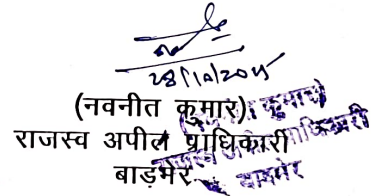 28/10/2025
(नवनीत कुमार)
राजस्व अपील प्राधिकारी
बाड़मेर